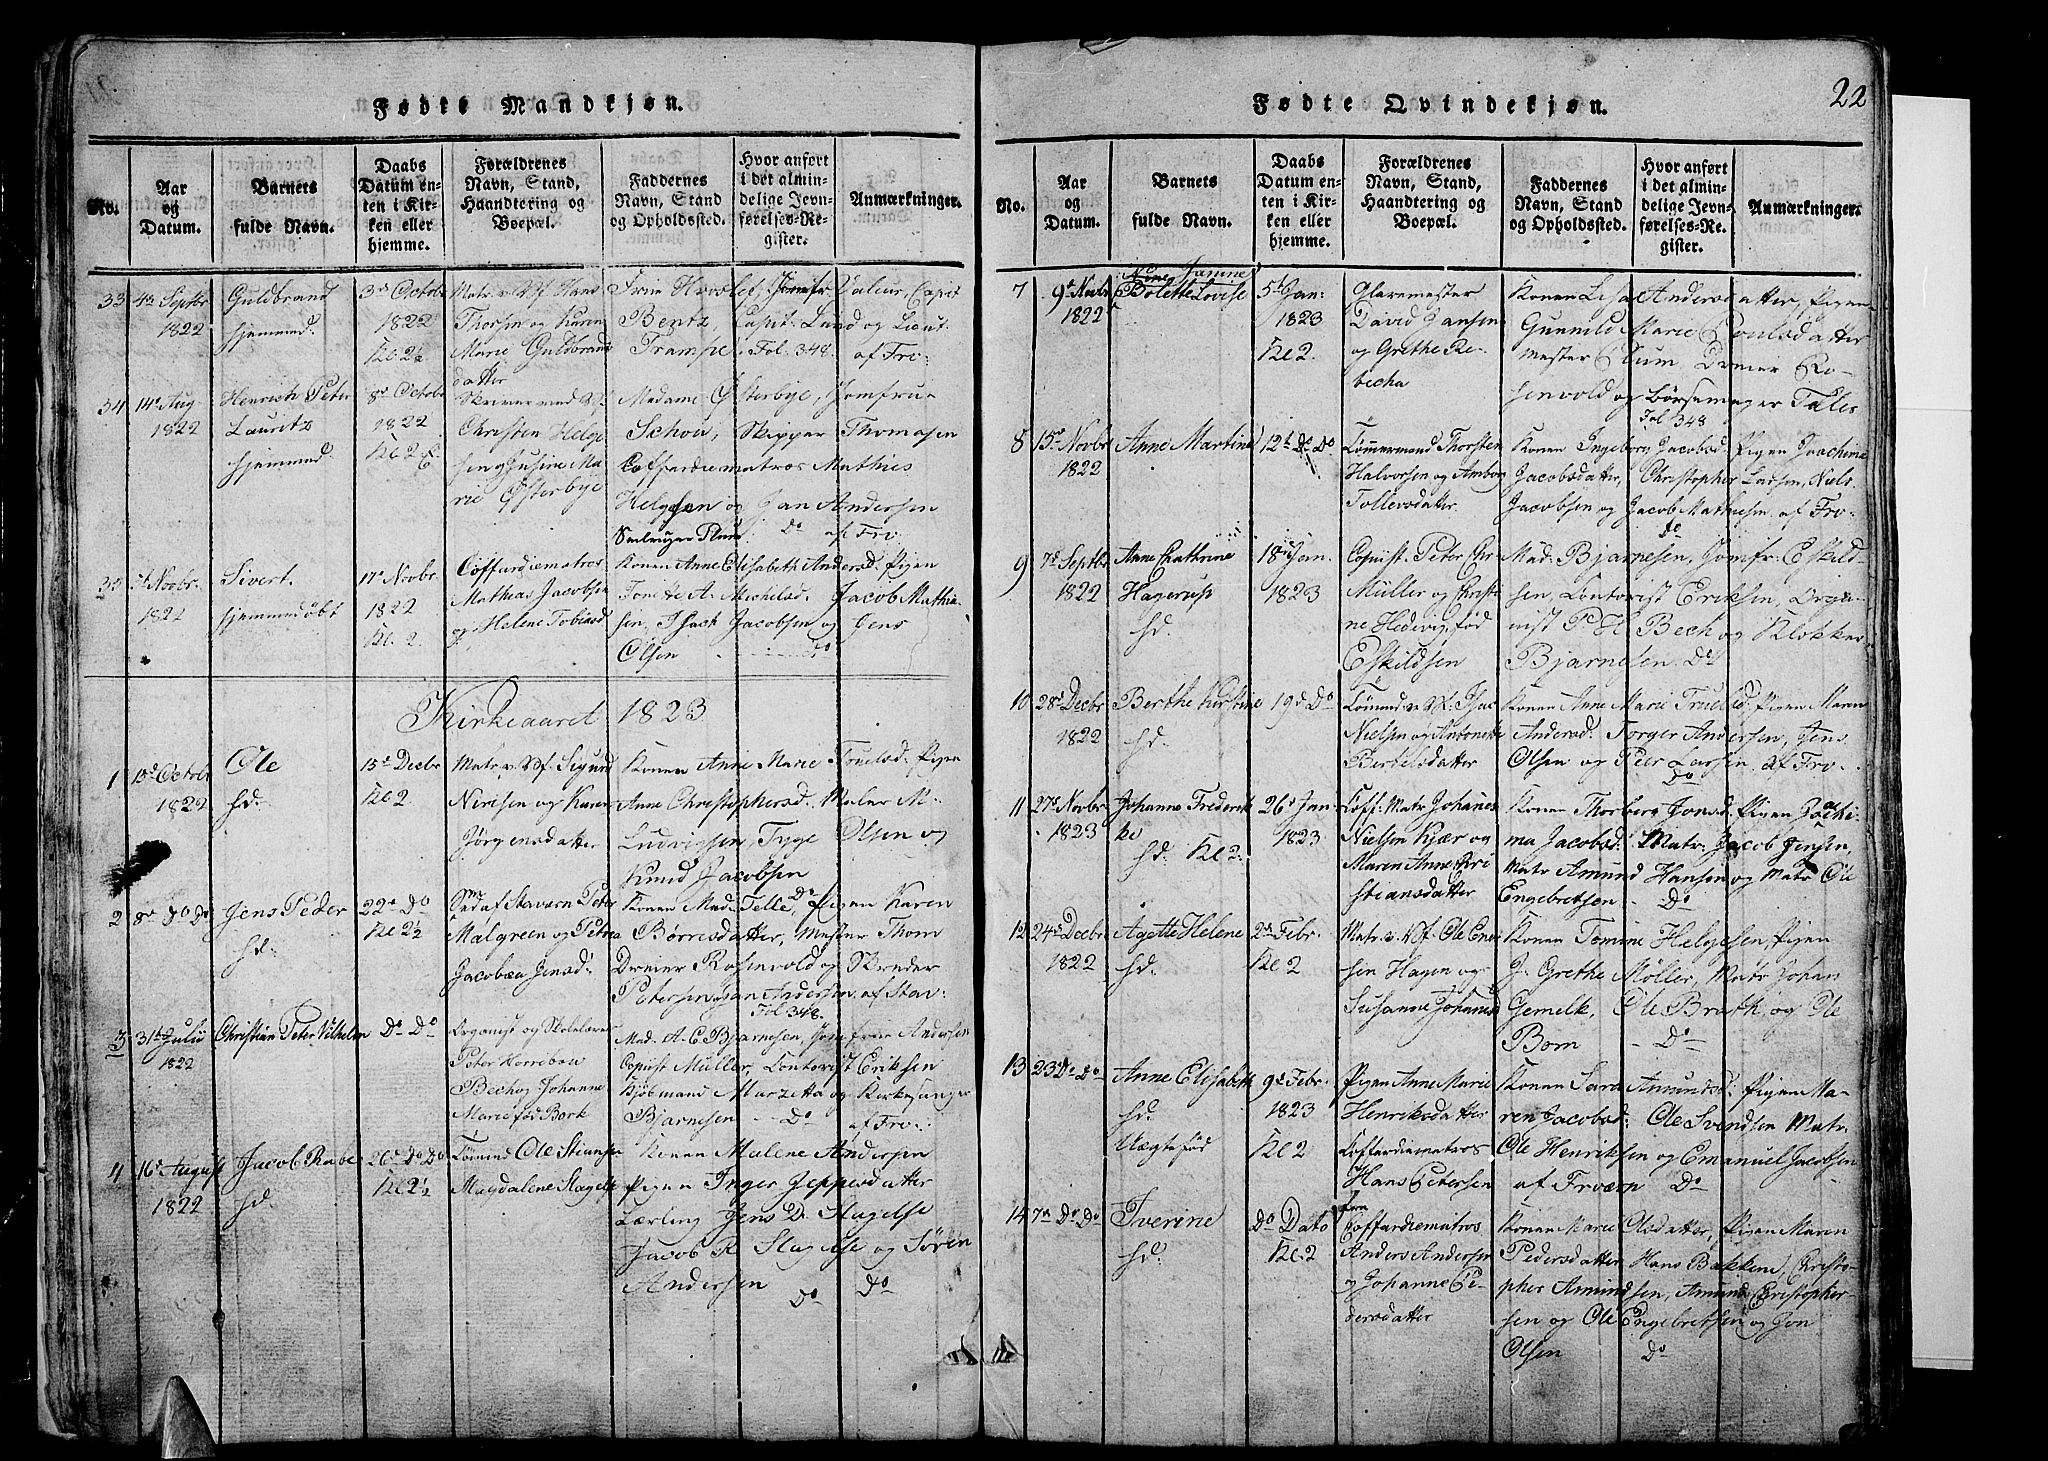 Fødte Mandkjøn.
No.
Aar
og
Datum.
Barnets
fulde Navn.
Daabs
Datum en-
ten i Kir-
ken eller
hjemme.
Forældrenes
Navn, Stand,
Haandtering og
Boepæl.
Faddernes
Navn, Stand
og Opholdssted.
Hvor anført
i det almin-
delige Jevn-
førelses-Re-
gister.
Anmærkninger.
33
Septbr
1822
Guldbrand
hjemmed.
3die Octobr
1822
Kl 2½
Matr. v. Vf. Hans
Thorsen og Karen
Marie Guldbrands
datter
Bentz, Capit: Lund og Lieut
Trampe. Fol. 348. af Fro-
34
14de Aug
1822
Henrich Peter
Lauritz
hjemmed.
8de Octobr
1822
Christen Helge
sen og Josine Ma-
rie Østerbye
Madame Østerbye, Jomfrue
Schow, Skipper Thomasen
Coffardiematros Mathies
Helgesen og Jan Andersen
Do af Fro.
35
Novbr.
1822
Sivert.
hjemmedøbt
17de Novbr
1822
Kl. 2.
Coffardiematros
Mathias Jacobsen
og Helene Tobiasd
Konen Anne Elisabeth Andersd, Pigen
Tomitte A. Michelsd. Jacob Mathia-
sen, Isach Jacobsen og Jens
Olsen Do
Kirkeaaret 1823
1
Octobr
1822
Ole
hd.
15de Decbr
Kl 2
Matr. v. Vf. Sigurd
Nirisen og Karen
Jørgensdatter
Konen Anne Marie Truelsd. Pigen
Anne Christophersd. Maler M.
Ludvigsen, Tyge Olsen og
Knud Jacobsen Do
2
8de Do Do
Jens Peder
hd.
22de Do
Kl 2½
Smd af Stavern Peter
Malgreen og Petrea
Jacobæa Jensd.
Konen Mad. Telle, Pigen Karen
Børresdatter, Mester Thom
Dreier Rosenvold og Skræder
Petersen og Jan Andersen af Stav-
Fol 348.
3
31te Julii
1822
Christian Peter Vilhelm
Do Do
Organist og Skolelærer
Peter Horrebow
Bech og Johanne
Marie fød Bork
Mad. A. C. Bjarnesen, Jomfrue Andersen
Copiist Müller, Contorist Eriksen
Kjøbmand Marzetta og Kirkesanger
Bjarnesen Do af Fro.
4
16de August
1822
Jacob Rabe
hd.
26de Do Do
Kl 2½
Tømmd Ole Stiansen
Magdalene Slagelse
Konen Malene Andersen
Pigen Inger Jeppesdatter
Lærling Jens D. Slagelse
Jacob R Slagelse og Søren
Andersen Do Do
Fødte Qvindekjøn.
22
No.
Aar
og
Datum.
Barnets
fulde Navn.
Daabs
Datum en-
ten i Kir-
ken eller
hjemme.
Forældrenes
Navn, Stand,
Haandtering og
Boepæl.
Faddernes
Navn, Stand
og Opholdssted.
Hvor anført
i det almin-
delige Jevn-
førelses-Re-
gister.
Anmærkninger.
7
9de Novbr
1822
Janine
Bolette Lovise
5te Jan:
1823
Kl 2.
Glarmester
David Jansen
og Grethe Re-
becha
Konen Lisa Andersdatter, Pigen
Gunnild Marie Poulsdatter
mester Blum, Dreier Ro-
senvold og Børsemager Tales
Fol 348
8
15de Novbr
1822
Anne Martine
12te Do Do
Tømmermand Thorsten
Halvorsen og Amborg
Tollevsdatter
Konen Ingeborg Jacobsd. Pigen Joachime
Jacobsdatter, Christopher Larsen, Niels
Jacobsen og Jacob Mathiesen, af Fro-
Do
9
7de Septbr
1822
Anne Chathrine
Hagerup
hd.
18de Jan.
1823
Copiist. Peter Chr.
Müller og Christi
ne Hedevig fød
Eskildsen
Mad. Bjarnesen, Jomfr. Eskild-
sen, Contorist Eriksen, Orga-
nist P. H. Bech og Klokker
Bjarnesen. Do
10
28de Decbr
1822
Berthe Kirstine
hd.
19de Do
Tømmd v. Vf. Isac
Nielsen og Antonette
Bertelsdatter
Konen Anne Marie Truelsd, Pigen Maren
Andersd. Torger Andersen, Jens
Olsen og Peer Larsen, af Fro-
Do
11
27de Novbr
1823
Johanne Frederik
ke
hd. Kl 2.
26de Jan
1823
Coff: Matr Johanes
Nielsen Kjær og
Maren Anne Chri
stiansdatter
Konen Thorberg Jonsd. Pigen Joachi-
ma Jacobsd. Matr. Jacob Jensen,
Matr Amund Hansen og Matr Ole
Engebretsen Do
12
24de Decbr
1822
Agette Helene
hd.
2den Febr.
Kl 2
Matr. v. Vf. Ole Ene-
sen Hagen og
Susanne Johanesd
Konen Tomine Helgesen, Pigen
J. Grethe Møller, Matr Johan
Gemelk, Ole Brath, og Ole
Born Do
13
23 Do Do
Anne Elisabeth
hd.
Uægtefød
9de Febr.
1823
Kl 2
Pigen Anne Marie
Henriksdatter
Coffardiematros
Hans Petersen
Konen Sara Amundsd: Pigen Ma-
ren Jacobsd: Ole Svendsen Matr.
Ole Henriksen og Emanuel Jacobsen
af Frværn Do
14
7de Do Do
Iverine
hd.
Do Dato
Kl 2
Coffardiematros
Anders Andersen
og Johanne Pe-
dersdatter
Konen Marie Olsdatter, Pigen Maren
Pedersdatter Hans Bakken, Christo-
pher Amundsen, Amund Christopher-
sen og Ole Engebretsen og Jon
Olsen Do